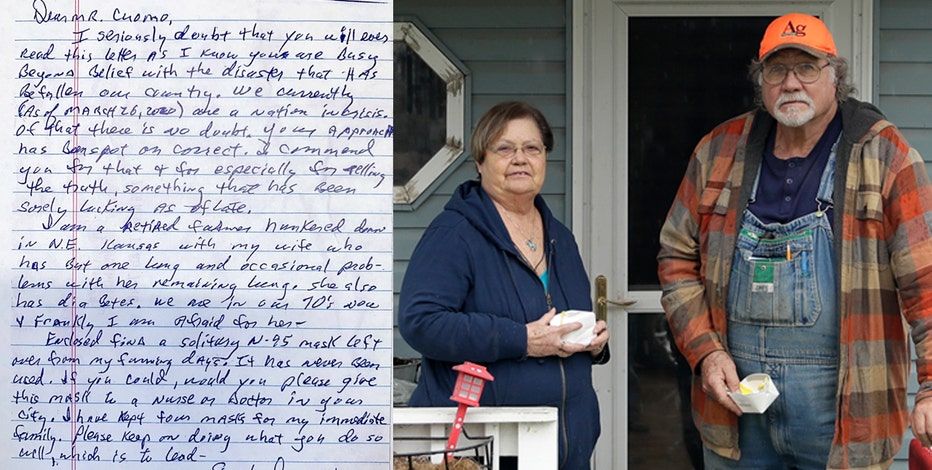 Dear Mr. Cuomo,
I seriously doubt that you will ever
read this letter as I know you are busy
beyond belief with the disaster that has
befallen our country. We currently
(as of March 26, 2020) are a nation in crisis.
Of that there is no doubt. Your approach
has been spot on correct. I commend
you for that & for especially for telling
the truth, something that has been
sorely lacking as of late.
I am a retired farmer hunkered down
in N.E. Kansas with my wife who
has but one lung and occasional prob-
lems with her remaining lung. She also
has diabetes. We are in our 70's now
& frankly, I am afraid for her-
Enclosed find a solitary N-95 mask left
over from my farming days. It has never been
used. If you could, would you please give
this mask to a nurse or doctor in your
city. I have kept four masks for my immediate
family. Please keep on doing what you do so
well, which is to lead-
Ag